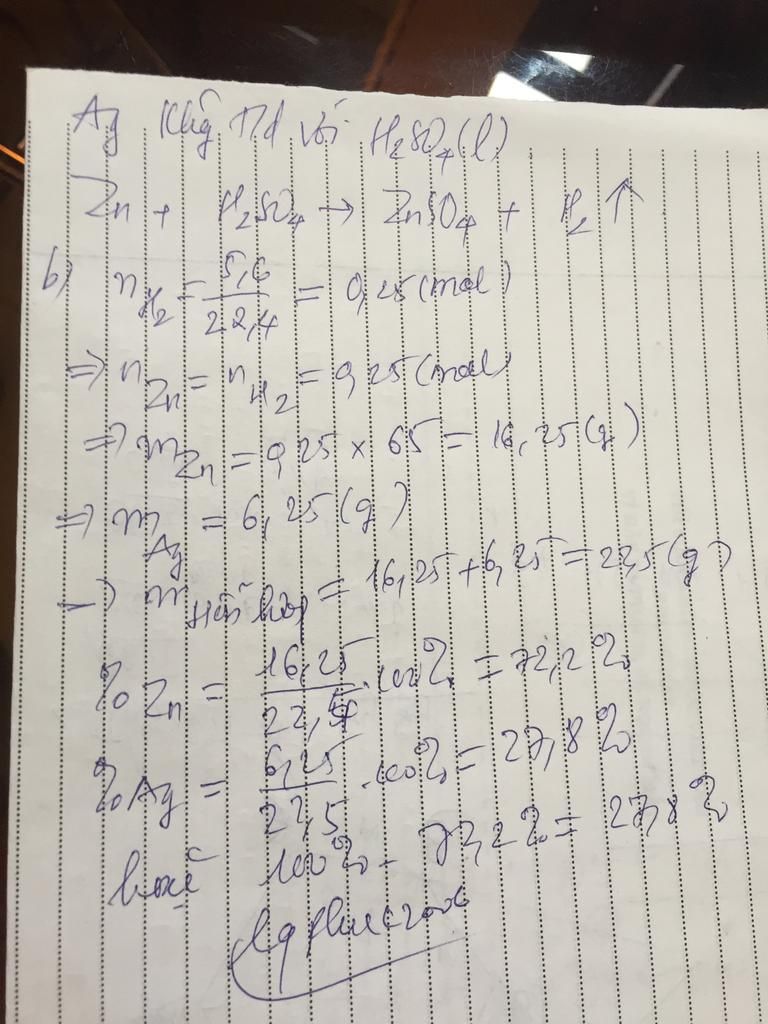 Ag Khg Td với H₂SO₄(l)
Zn + H₂SO₄ → ZnSO₄ + H₂ ↑
b) n_H₂ = 5,6/22,4 = 0,25 (mol)
=> n_Zn = n_H₂ = 0,25 (mol)
=> m_Zn = 0,25 × 65 = 16,25 (g)
=> m_Ag = 6,25 (g)
=> m_Hỗn hợp = 16,25 + 6,25 = 22,5 (g)
% Zn = 16,25/22,5 . 100% = 72,2%
% Ag = 6,25/22,5 . 100% = 27,8%
hoặc 100% - 72,2% = 27,8%